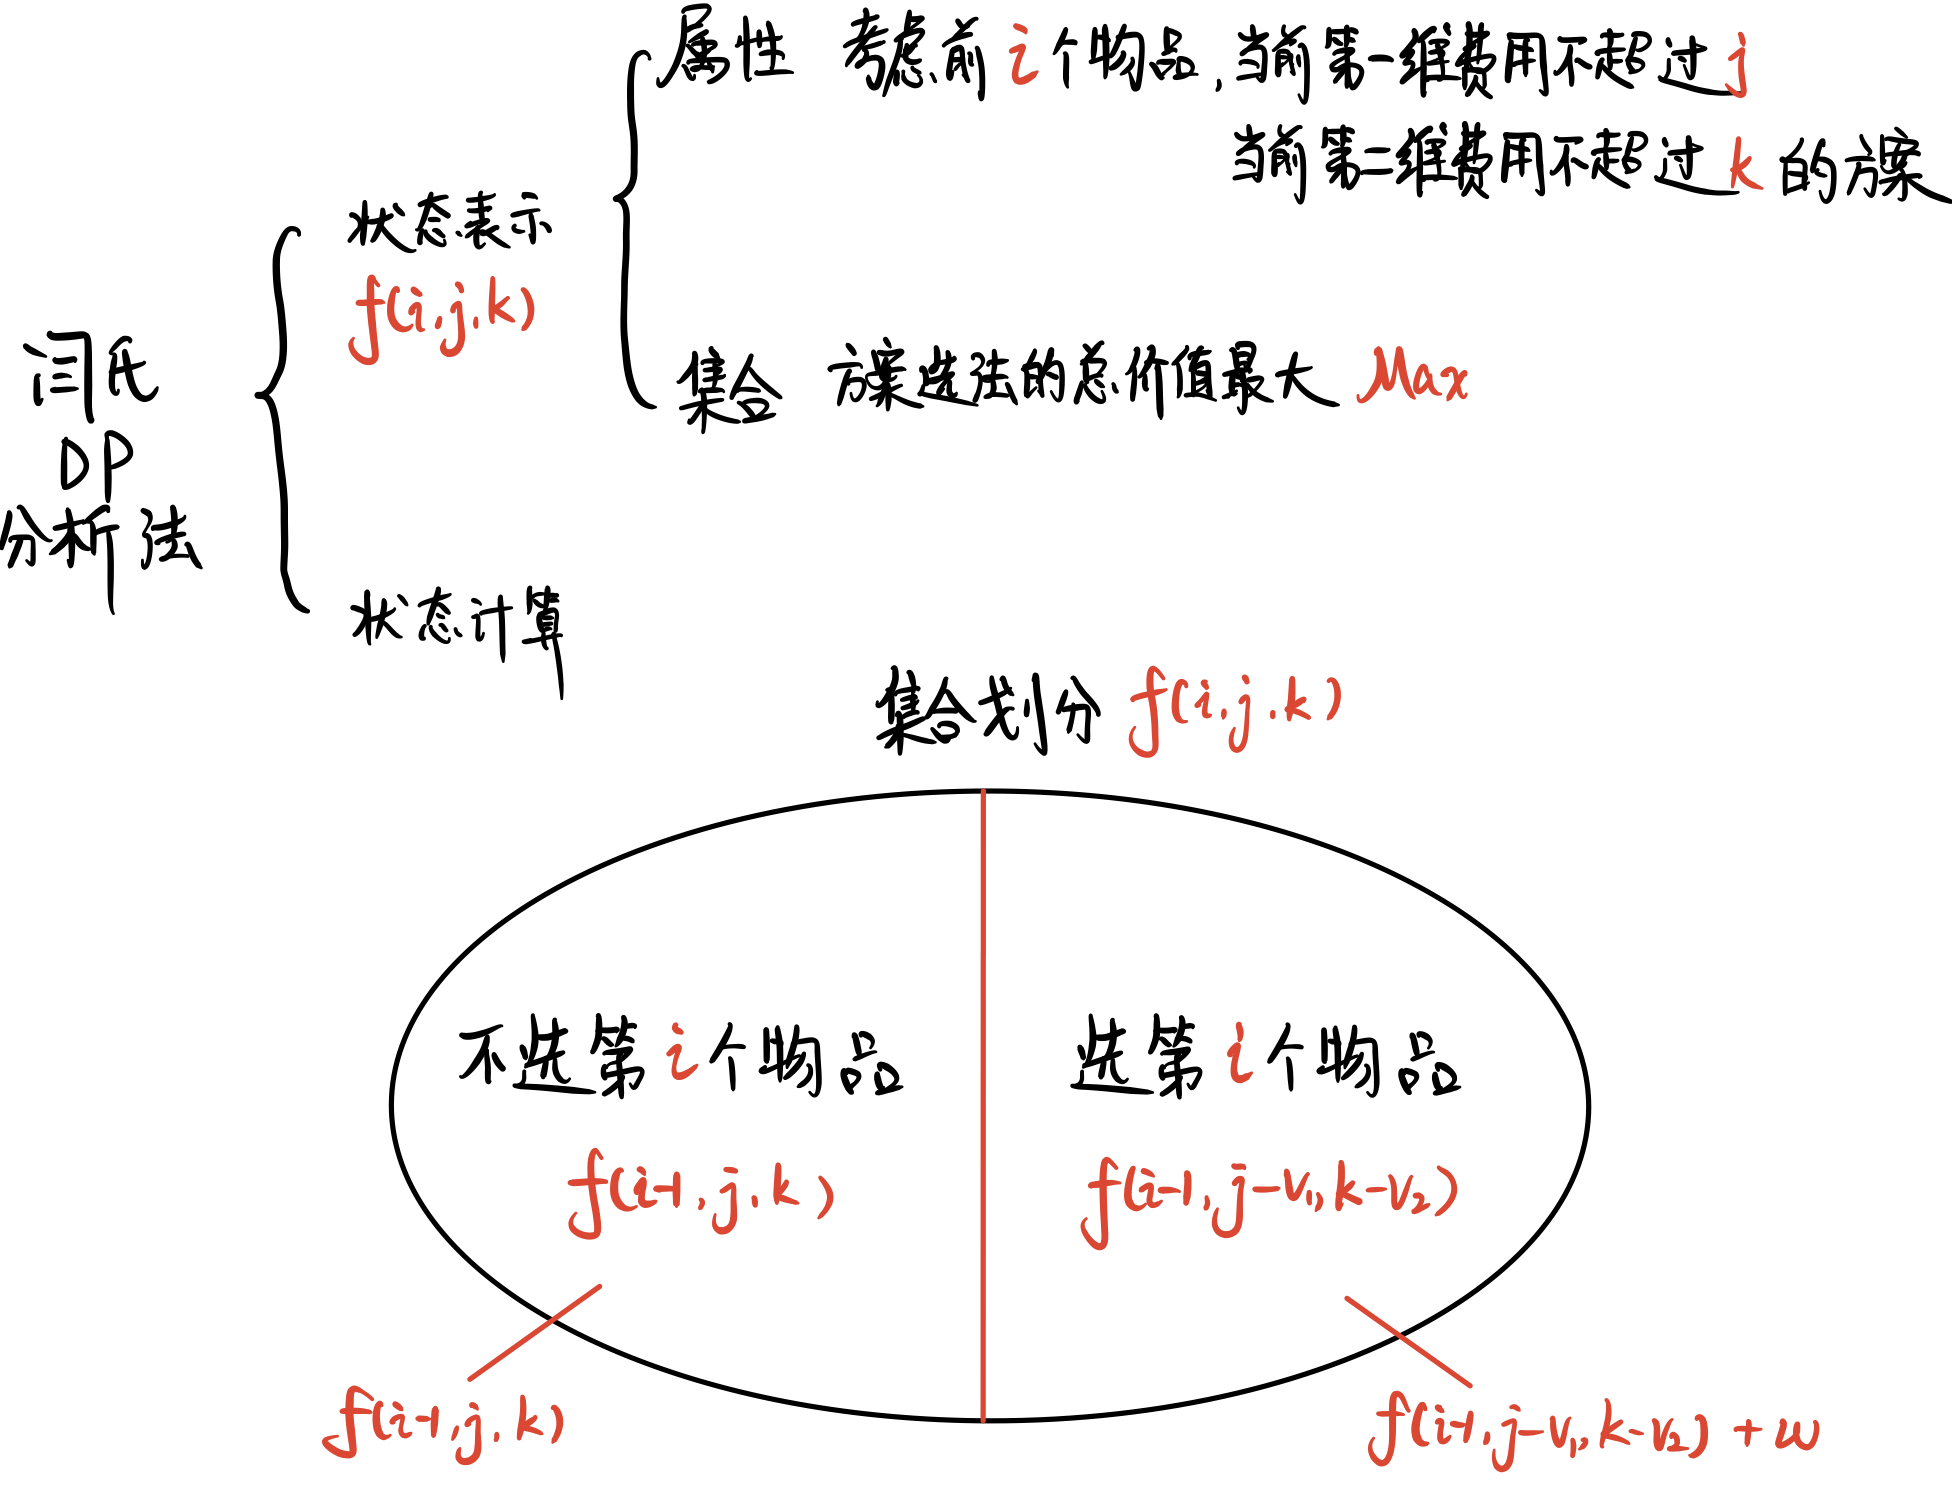 闫氏
DP
分析法
状态表示
f(i,j,k)
属性 考虑前i个物品,当前第一维费用不超过j
当前第二维费用不超过k的方案
集合 方案选法的总价值最大 Max
状态计算
集合划分 f(i,j,k)
不选第i个物品
f(i-1,j,k)
选第i个物品
f(i-1,j-v₁,k-v₂)
f(i-1,j,k)
f(i-1,j-v₁,k-v₂)+w